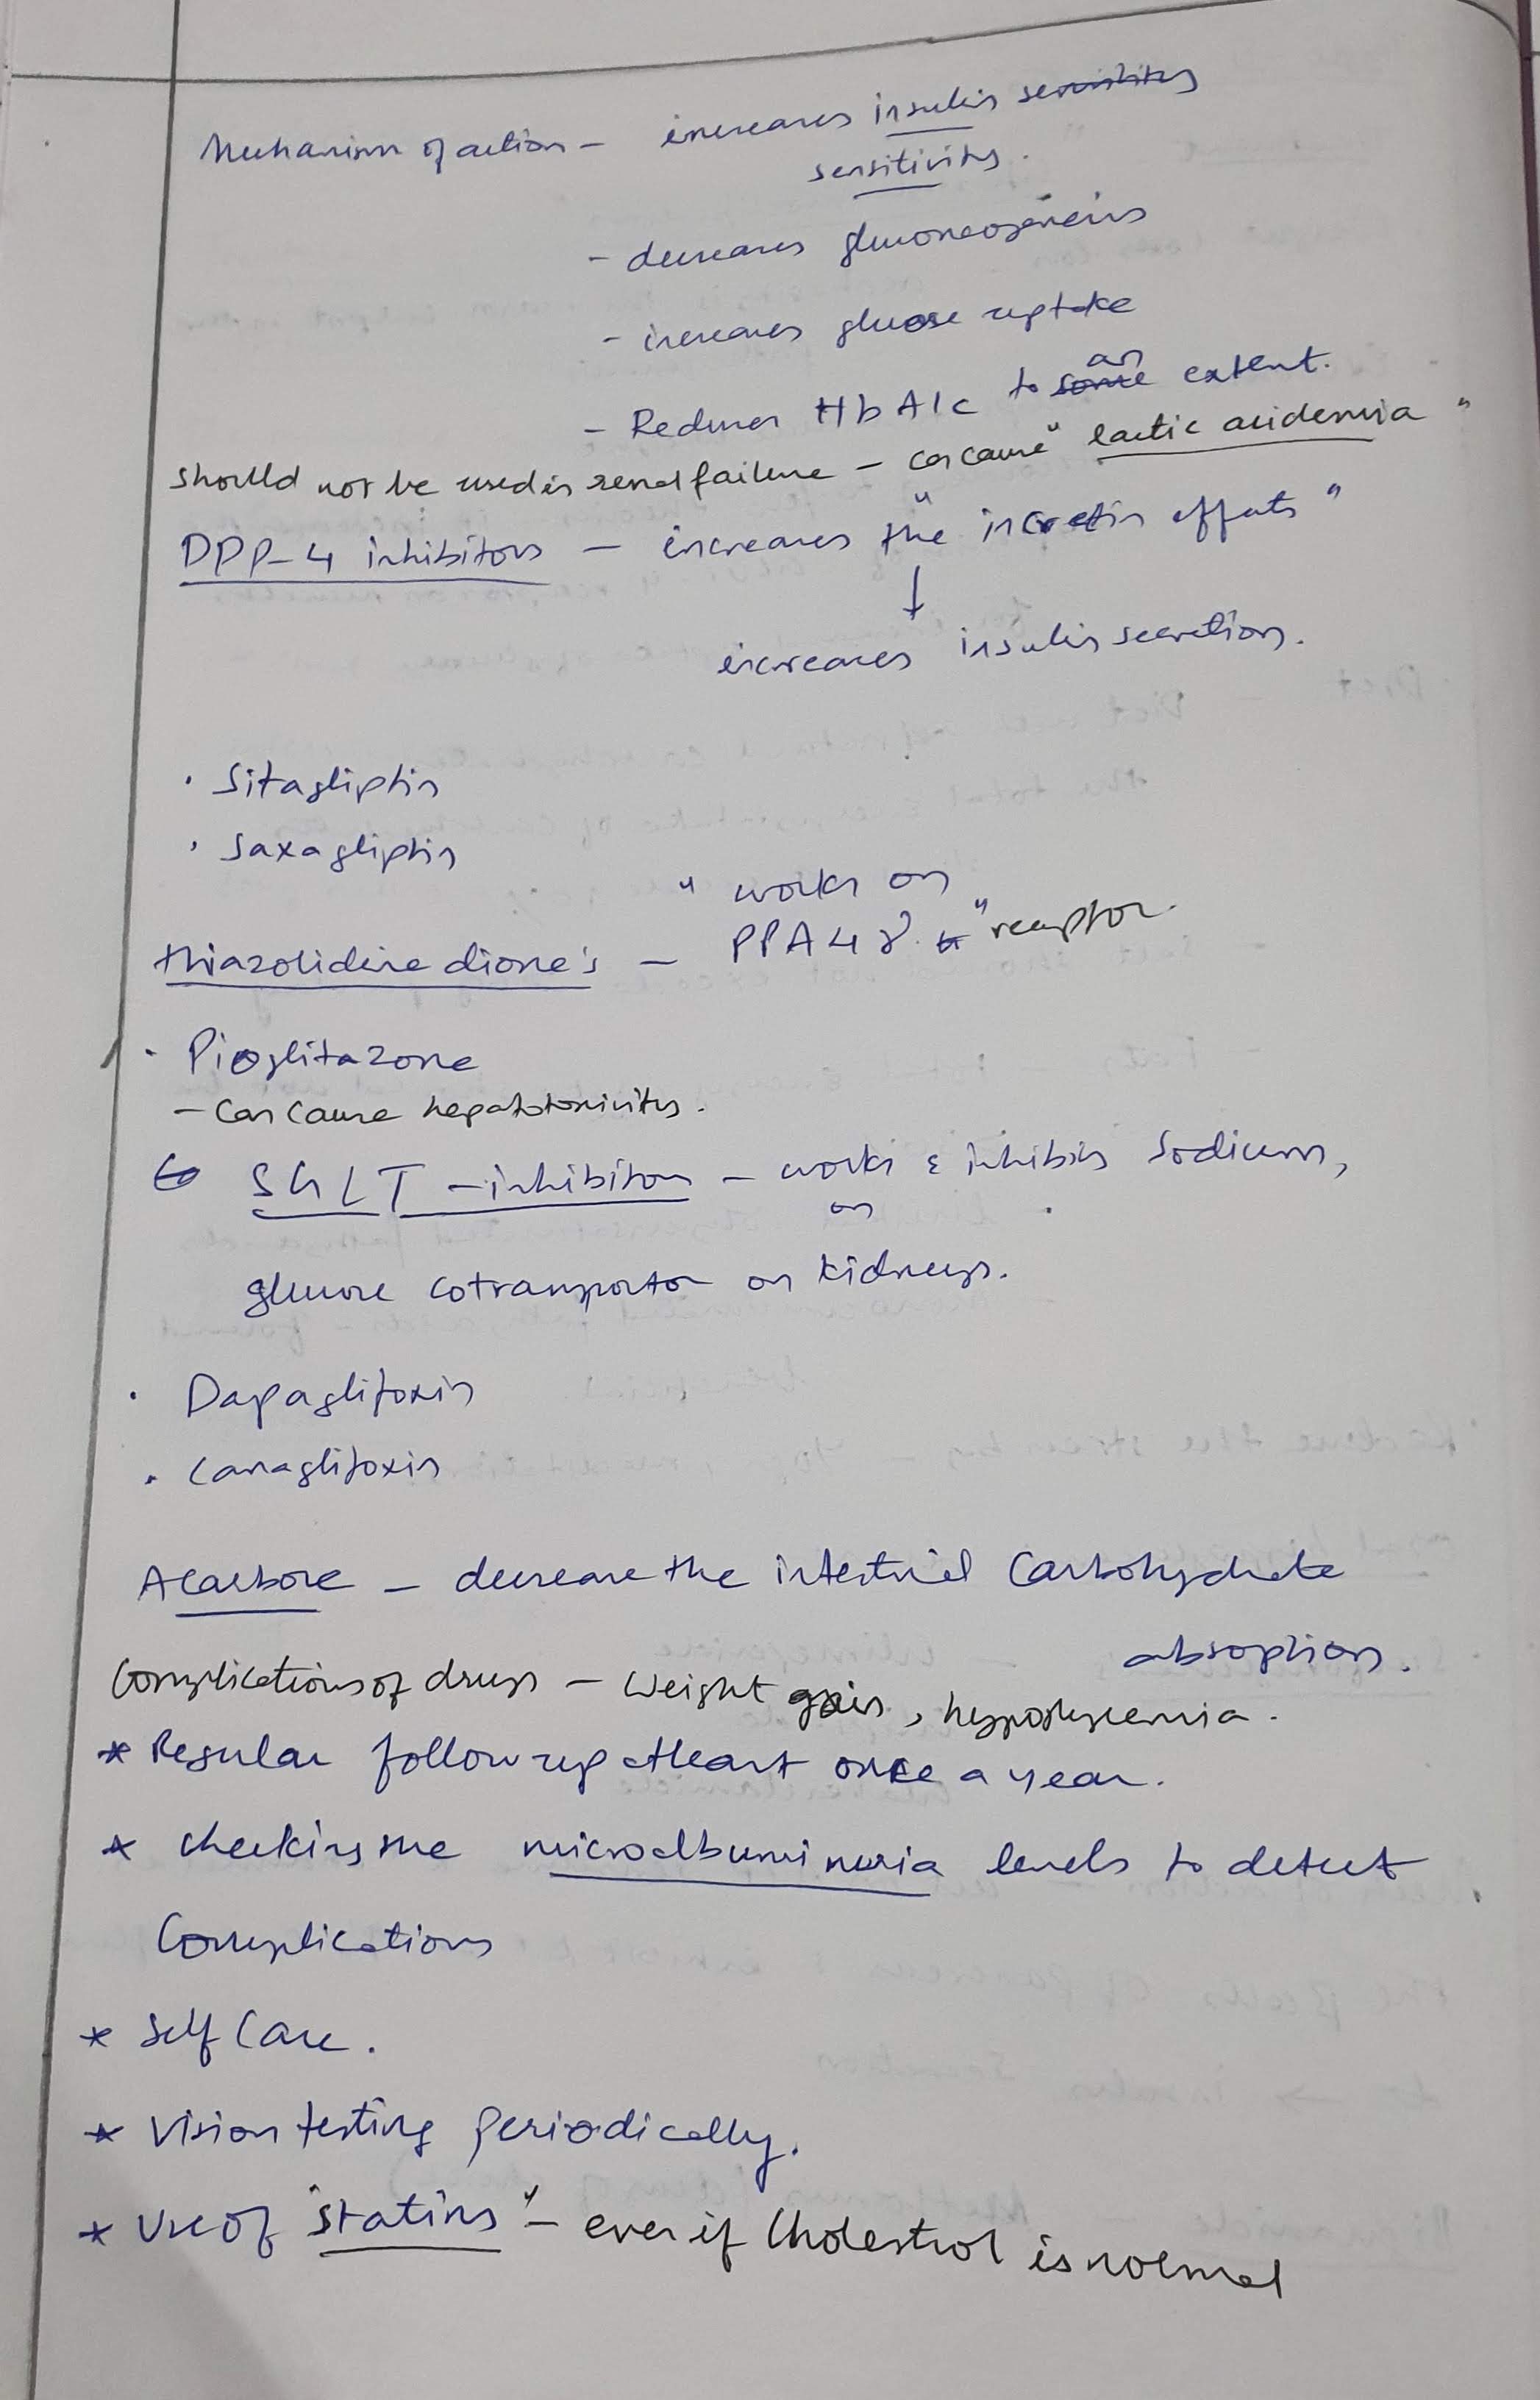 Mechanism of action - increases insulin sensitivity
sensitivity.
- decreases gluconeogenesis
- increases glucose uptake
- Reduces HbA1c to some an extent.
should not be used in renal failure - can cause "lactic acidemia"
DPP-4 inhibitors - increases the "incretin effects"
↓
increases insulin secretion.
· Sitagliptin
· Saxagliptin
" works on
thiazolidine dione's - PPA4 γ " receptor.
· Pioglitazone
- can cause hepatotoxicity.
SGLT - inhibitors - works & inhibits Sodium,
on
glucose cotransportor on kidneys.
· Dapaglifoxin
· Canaglifoxin
Acarbose - decrease the intestinal Carbohydrate
absoption.
Complications of drugs - Weight gain, hypoglycemia.
* Regular follow up atleast once a year.
* checking the microalbuminuria levels to detect
Complications
* Self Care.
* Vision testing periodically.
* Use of "statins" - even if Cholestrol is normal